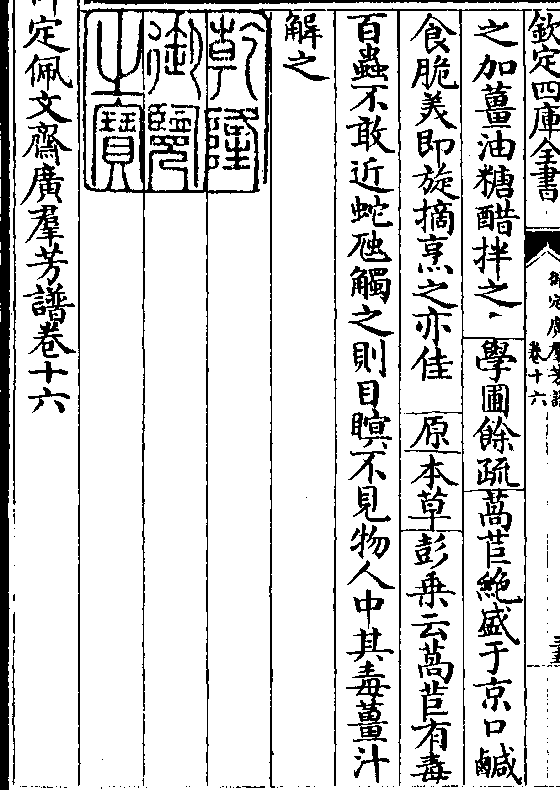 欽定四庫全書
御定廣羣芳譜
卷十六
之加薑油糖醋拌之 學圃餘疏萵苣絶盛于京口鹹
食脆美即旋摘烹之亦佳 原本草彭乗云萵苣有毒
百蟲不敢近蛇虺觸之則目瞑不見物人中其毒薑汁
解之
乾隆
御覽
之寳
定佩文齋廣羣芳譜卷十六